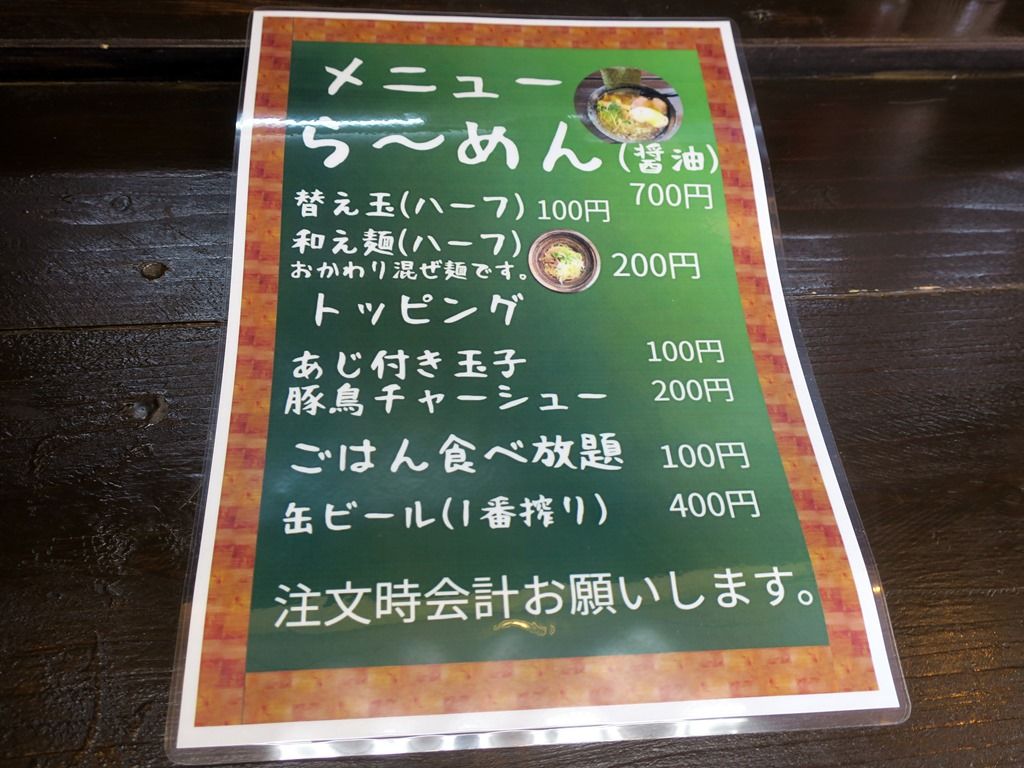 メニュー
ら〜めん(醤油)
700円
替え玉(ハーフ) 100円
和え麺(ハーフ)
おかわり混ぜ麺です。 200円
トッピング
あじ付き玉子 100円
豚鳥チャーシュー 200円
ごはん食べ放題 100円
缶ビール(1番搾り) 400円
注文時会計お願いします。